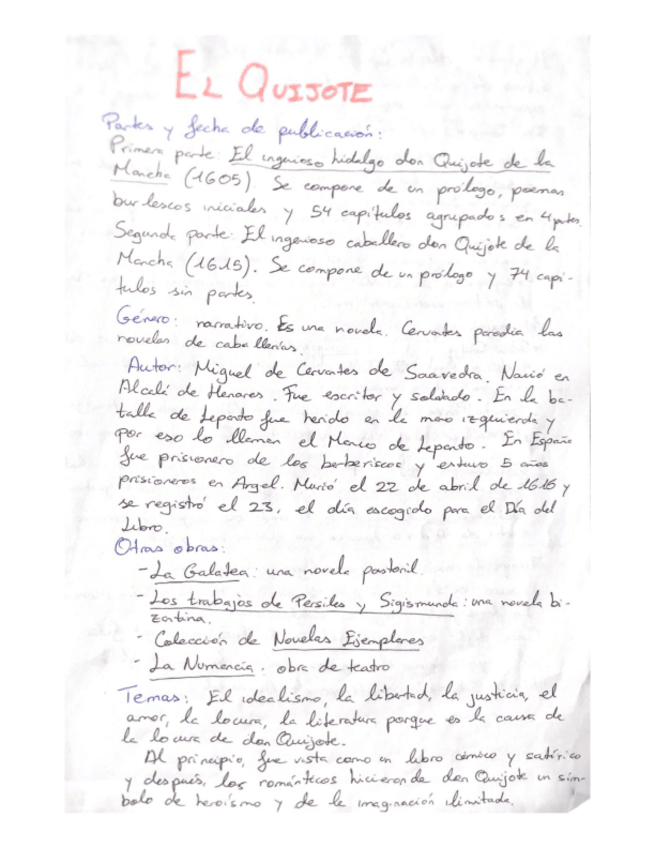 EL QUIJOTE
Partes y fecha de publicación:
Primera parte: El ingenioso hidalgo don Quijote de la
Mancha (1605). Se compone de un prólogo, poemas
burlescos iniciales y 54 capítulos agrupados en 4 partes.
Segunda parte: El ingenioso caballero don Quijote de la
Mancha (1615). Se compone de un prólogo y 74 capí-
tulos sin partes.
Género: narrativo. Es una novela. Cervantes parodia las
novelas de caballerías.
Autor: Miguel de Cervantes de Saavedra. Nació en
Alcalá de Henares. Fue escritor y soldado. En la ba-
talla de Lepanto fue herido en la mano izquierda y
por eso lo llaman el Manco de Lepanto. En España
fue prisionero de los berberiscos y estuvo 5 años
prisioneros en Argel. Murió el 22 de abril de 1616 y
se registró el 23, el día escogido para el Día del
Libro.
Otras obras:
- La Galatea: una novela pastoril.
- Los trabajos de Persiles y Sigismunda: una novela bi-
zantina.
- Colección de Novelas Ejemplares
- La Numancia. obra de teatro
Temas: El idealismo, la libertad, la justicia, el
amor, la locura, la literatura porque es la causa de
la locura de don Quijote.
Al principio, fue vista como un libro cómico y satírico
y después, los románticos hicieron de don Quijote un sím-
bolo de heroísmo y de la imaginación ilimitada.